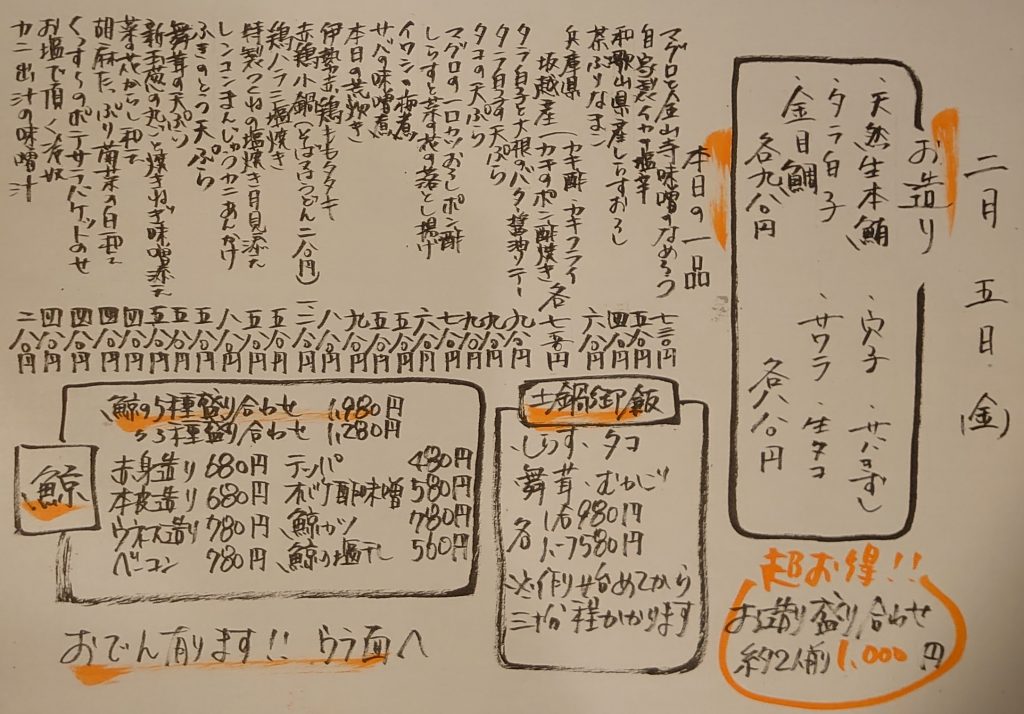 二月 五日 (金)
お造り
・天然生本鮪 ・穴子 ・サバきずし
・タラ白子 ・サワラ ・生タコ
・金目鯛
各九八〇円 各八八〇円
本日の一品
マグロと金山寺味噌のなめろう 七三〇円
自家製イカ塩辛 五八〇円
和歌山県産しらすおろし 四八〇円
茶ぶりなまこ 六八〇円
兵庫県
坂越産(カキ酢・カキフライ
カキのポン酢焼き 各七八〇円
タラ白子と大根のバタ醤油ソテー 九八〇円
タラ白子天ぷら 九八〇円
タコの天ぷら 九八〇円
マグロの一口カツおろしポン酢 七八〇円
しらすと菜の花の落とし揚げ 六八〇円
イワシの梅煮 五八〇円
サバの味噌煮 五八〇円
本日の荒炊き 九八〇円
伊勢赤鶏ももタタキ 八八〇円
赤鶏小鍋(そば又はうどん二八〇円)
鶏ハラミ塩焼き 五八〇円
特製つくねの塩焼き月見添え 五八〇円
レンコンまんじゅうカニあんかけ 八八〇円
ふきのとう天ぷら 五八〇円
舞茸の天ぷら 五八〇円
新玉葱の丸ごと焼きねぎ味噌添え 五八〇円
菜の花からし和え 四八〇円
胡麻たっぷり菊菜の白和え 四八〇円
くんずりのポテサラバゲットのせ 四八〇円
お塩で頂く冷奴 四八〇円
カニ出汁の味噌汁 二八〇円
鯨
鯨の5種盛り合わせ 1,980円
〃 3種盛り合わせ 1,280円
赤身造り 680円 テッパ 480円
本皮造り 680円 オバケ酢味噌 580円
ウネス造り 780円 鯨カツ 780円
ベーコン 780円 鯨の塩干し 560円
土鍋御飯
・しらす ・タコ
・舞茸 ・むかご
各 1合 980円
1.5合 1580円
※作り始めてから
三十分程かかります
超お得!!
お造り盛り合わせ
約2人前 1,000円
おでん有ります!! ウラ面へ